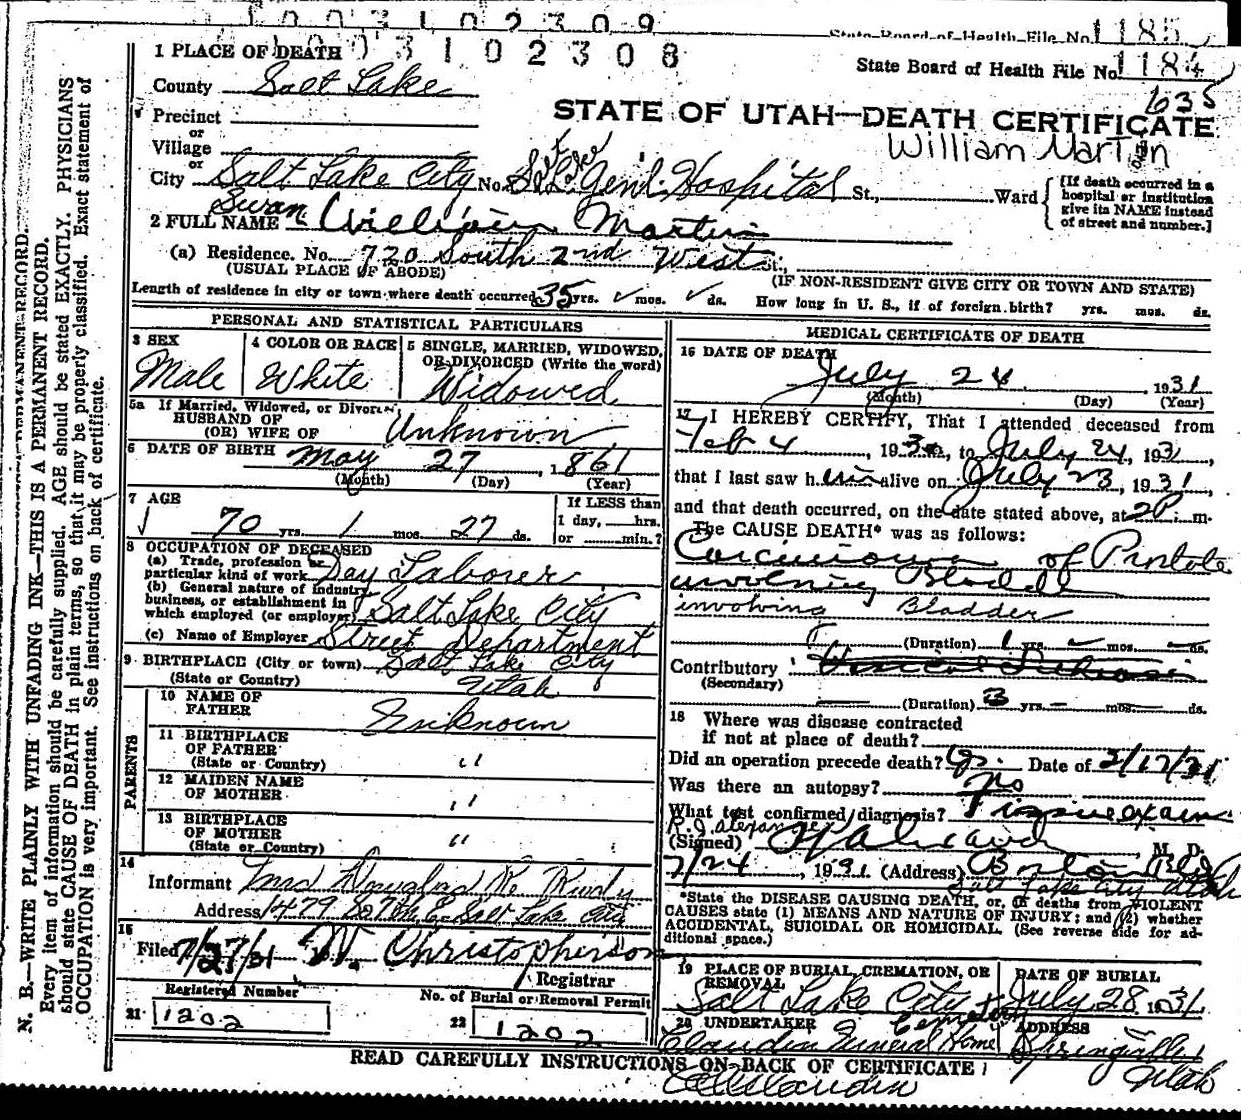 1003102309
State Board of Health File No. 1185
1003102308
1 PLACE OF DEATH
State Board of Health File No. 1184
County Salt Lake
635
STATE OF UTAH—DEATH CERTIFICATE
Precinct
or
William Martin
Village
or
City Salt Lake City No. S. L. Gen'l Hospital St., Ward
Salt Lake
[If death occurred in a hospital or institution give its NAME instead of street and number.]
Swan
2 FULL NAME William Martin
(a) Residence. No. 720 South 2nd West St.,
(USUAL PLACE OF ABODE)
(IF NON-RESIDENT GIVE CITY OR TOWN AND STATE)
Length of residence in city or town where death occurred 35 yrs. ✓ mos. ✓ ds. How long in U. S., if of foreign birth? yrs. mos. ds.
PERSONAL AND STATISTICAL PARTICULARS
3 SEX
Male
4 COLOR OR RACE
White
5 SINGLE, MARRIED, WIDOWED, OR DIVORCED (Write the word)
Widowed
5a If Married, Widowed, or Divorced
HUSBAND OF
(OR) WIFE OF
Unknown
6 DATE OF BIRTH May 27, 1861
(Month) (Day) (Year)
7 AGE
70 yrs. 1 mos. 27 ds.
If LESS than
1 day, hrs.
or min.?
8 OCCUPATION OF DECEASED
(a) Trade, profession or
particular kind of work Day Laborer
(b) General nature of industry
business, or establishment in
which employed (or employer) Salt Lake City
(c) Name of Employer Street Department
9 BIRTHPLACE (City or town) Salt Lake City
(State or Country) Utah
PARENTS
10 NAME OF
FATHER Unknown
11 BIRTHPLACE
OF FATHER
(State or Country) "
12 MAIDEN NAME
OF MOTHER "
13 BIRTHPLACE
OF MOTHER
(State or Country) "
14
Informant Mrs Douglas
Address 1479 So 7th E. Salt Lake City
15
Filed 7/27/31 W. Christopherson
Registrar
Registered Number
21 1202
No. of Burial or Removal Permit
22 1202
MEDICAL CERTIFICATE OF DEATH
16 DATE OF DEATH
July 24 1931
(Month) (Day) (Year)
17 I HEREBY CERTIFY, That I attended deceased from
Feb 4, 193, to July 24, 1931,
that I last saw him alive on July 23, 1931,
and that death occurred, on the date stated above, at 2 P. m.
The CAUSE DEATH* was as follows:
Carcinoma of Prostate
involving Bladder
involving Bladder
(Duration) 1 yrs. mos. ds.
Contributory
(Secondary)
(Duration) 3 yrs. mos. ds.
18 Where was disease contracted
if not at place of death?
Did an operation precede death? Date of 3/17/31
Was there an autopsy? No
What test confirmed diagnosis? Tissue exam
R. J. Alexander
(Signed) M. D.
7/24, 1931. (Address)
Salt Lake City Utah
*State the DISEASE CAUSING DEATH, or, of deaths from VIOLENT
CAUSES state (1) MEANS AND NATURE OF INJURY; and (2) whether
ACCIDENTAL, SUICIDAL OR HOMICIDAL. (See reverse side for ad-
ditional space.)
19 PLACE OF BURIAL, CREMATION, OR
REMOVAL
Salt Lake City
Cemetery
DATE OF BURIAL
July 28 1931
20 UNDERTAKER
Claudin Funeral Home
ADDRESS
Springville,
Utah
READ CAREFULLY INSTRUCTIONS ON BACK OF CERTIFICATE
N. B.—WRITE PLAINLY WITH UNFADING INK—THIS IS A PERMANENT RECORD.
Every item of information should be carefully supplied. AGE should be stated EXACTLY. PHYSICIANS
should state CAUSE OF DEATH in plain terms, so that it may be properly classified. Exact statement of
OCCUPATION is very important. See instructions on back of certificate.